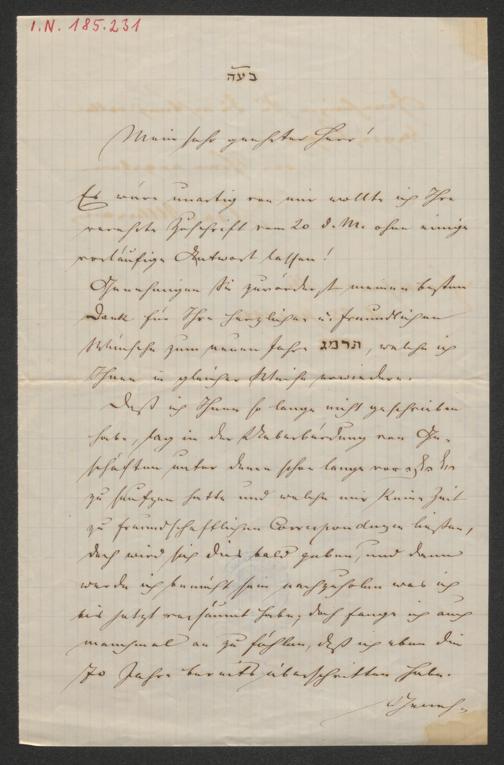 I.N. 185.231
בעה
Mein sehr geehrter Herr!
Es wäre unartig von mir wollte ich Ihre
verehrte Zuschrift vom 20 d. M. ohne einige
vorläufige Antwort lassen!
Genehmigen Sie zuvörderst meinen besten
Dank für Ihre herzlichen u. freundlichen
Wünsche zum neuen Jahre תרמג, welche ich
Ihnen in gleicher Weise erwiedere.
Daß ich Ihnen so lange nicht geschrieben
habe, lag in der Ueberbürdung von Ge-
schäften unter denen schon lange
zu seufzen hatte und welche mir keine Zeit
zu freundschaftlichen Correspondenzen ließen,
doch wird sich dies bald geben, und dann
werde ich bemüht sein nachzuholen was ich
bis jetzt versäumt habe; doch fange ich auch
manchmal an zu fühlen, daß ich eben die
70 Jahre bereits überschritten habe.